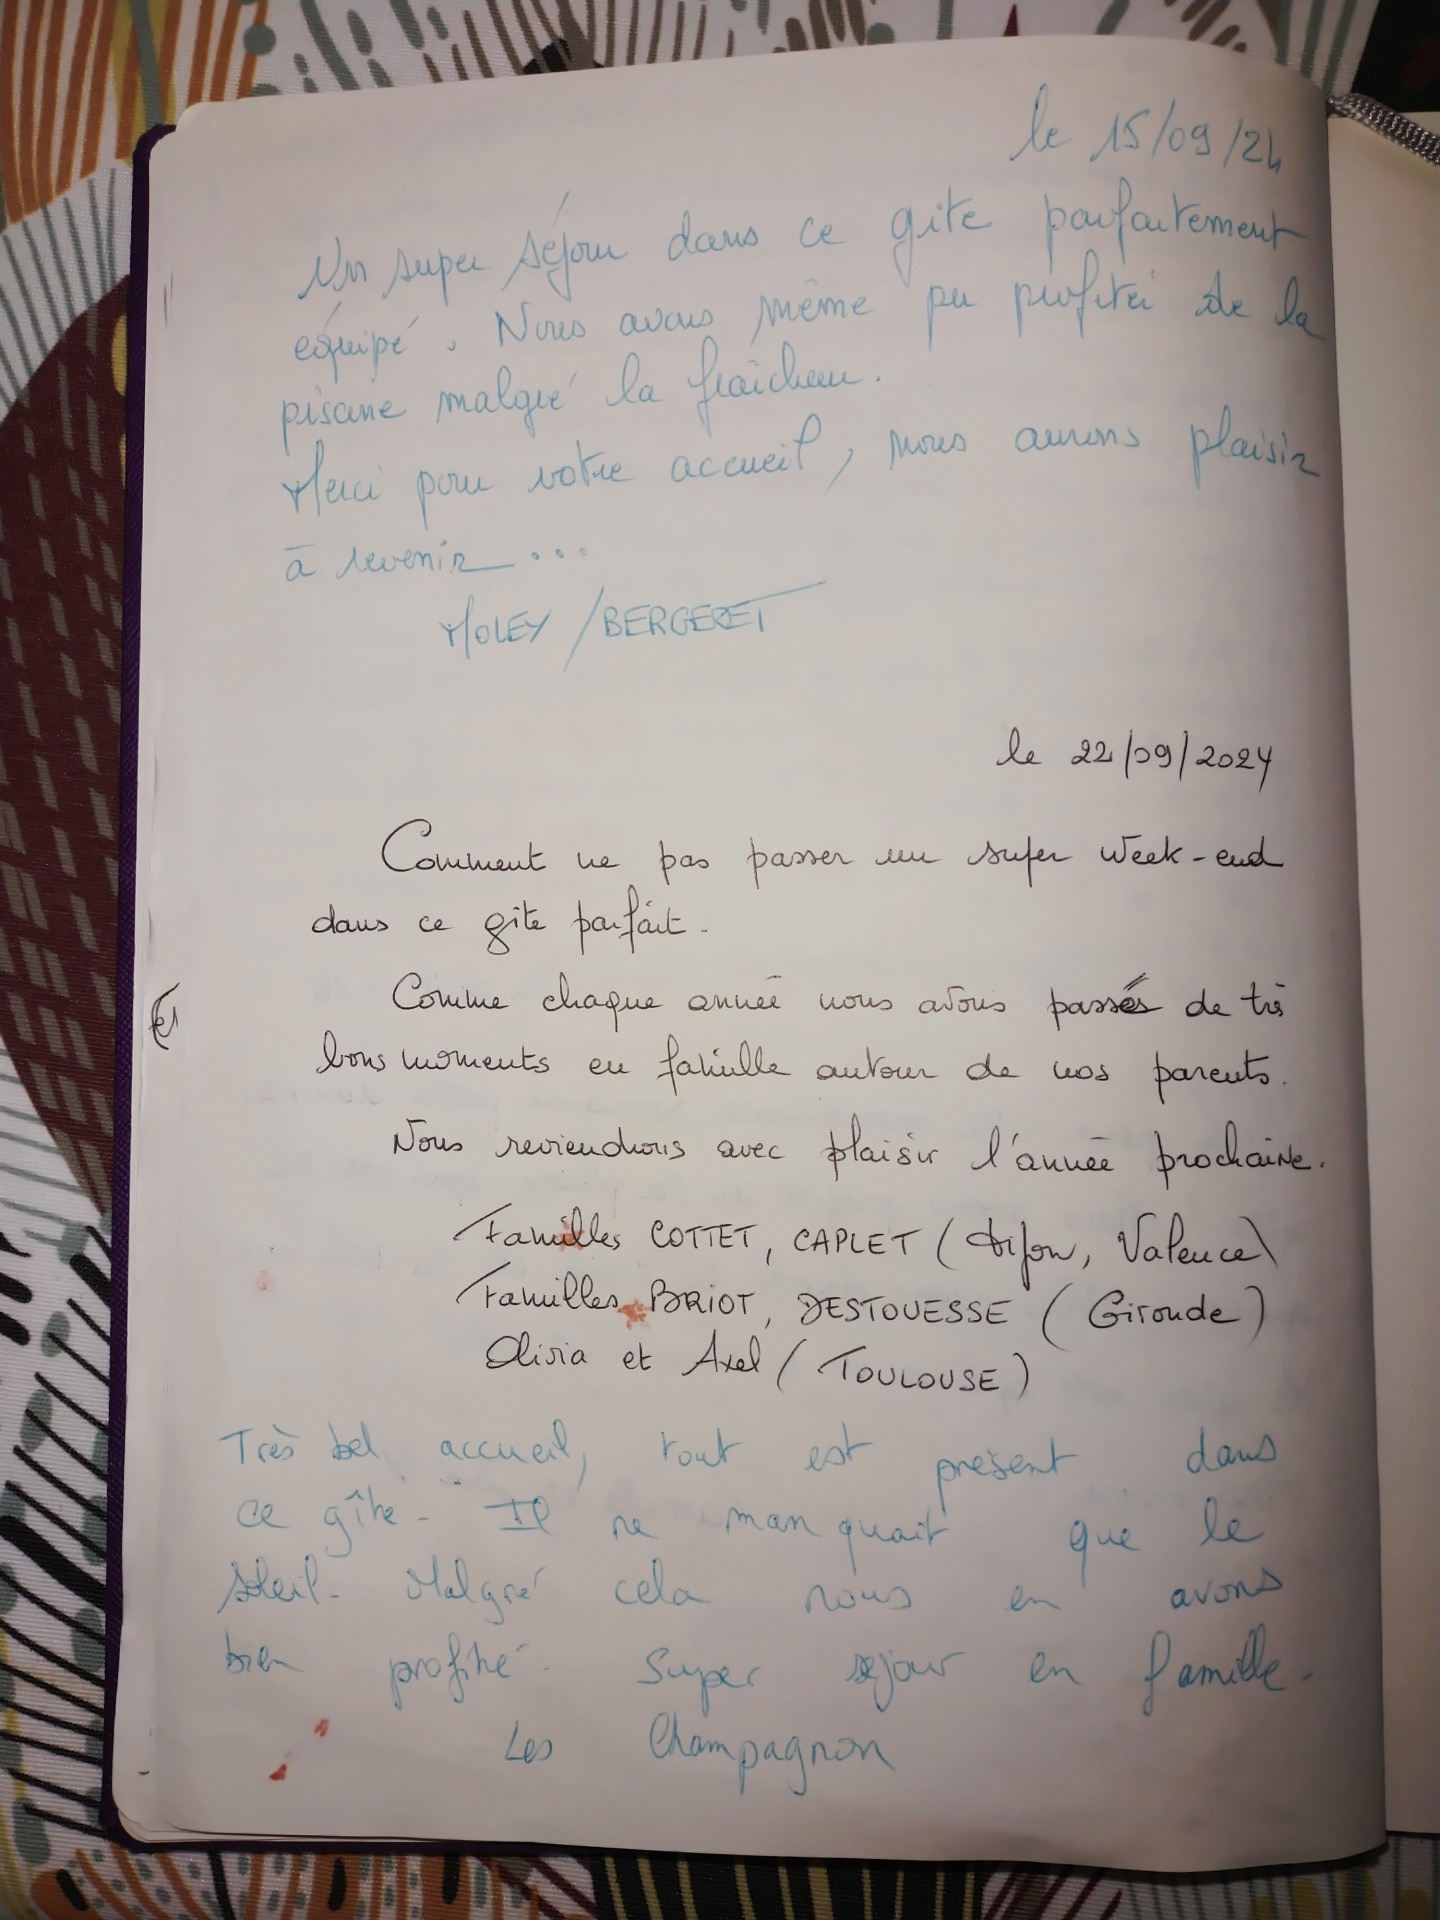 le 15/09/24
Un super séjour dans ce gite parfaitement
équipé. Nous avons même pu profiter de la
piscine malgré la fraîcheur.
Merci pour votre accueil, nous aurons plaisir
à revenir ...
MOLEY / BERGERET
le 22/09/2024
Comment ne pas passer un super week-end
dans ce gîte parfait.
Comme chaque année nous avons passés de très
bons moments en famille autour de nos parents.
Nous reviendrons avec plaisir l'année prochaine.
Familles COTTET, CAPLET (Dijon, Valence)
Familles BRIOT, DESTOUESSE (Gironde)
Olivia et Axel (TOULOUSE)
Très bel accueil, tout est présent dans
ce gîte. Il ne manquait que le
soleil. Malgré cela nous en avons
bien profité. Super séjour en famille.
Les Champagnon